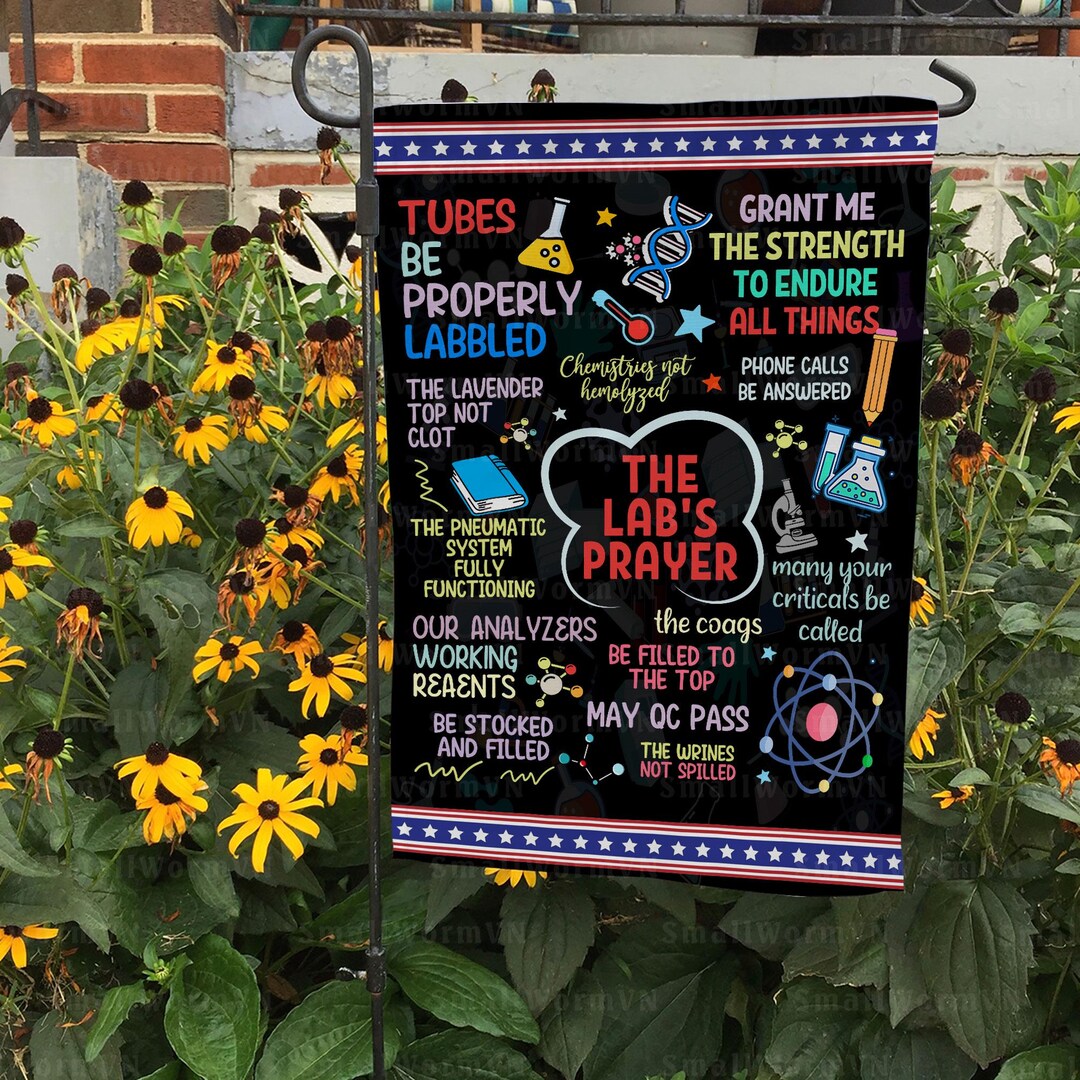 TUBES
BE
PROPERLY
LABBLED
GRANT ME
THE STRENGTH
TO ENDURE
ALL THINGS
Chemistries not
hemolyzed
PHONE CALLS
BE ANSWERED
THE LAVENDER
TOP NOT
CLOT
THE
LAB'S
PRAYER
THE PNEUMATIC
SYSTEM
FULLY
FUNCTIONING
many your
criticals be
called
OUR ANALYZERS
WORKING
REAENTS
the coags
BE FILLED TO
THE TOP
BE STOCKED
AND FILLED
MAY QC PASS
THE WRINES
NOT SPILLED
SmallWormVN